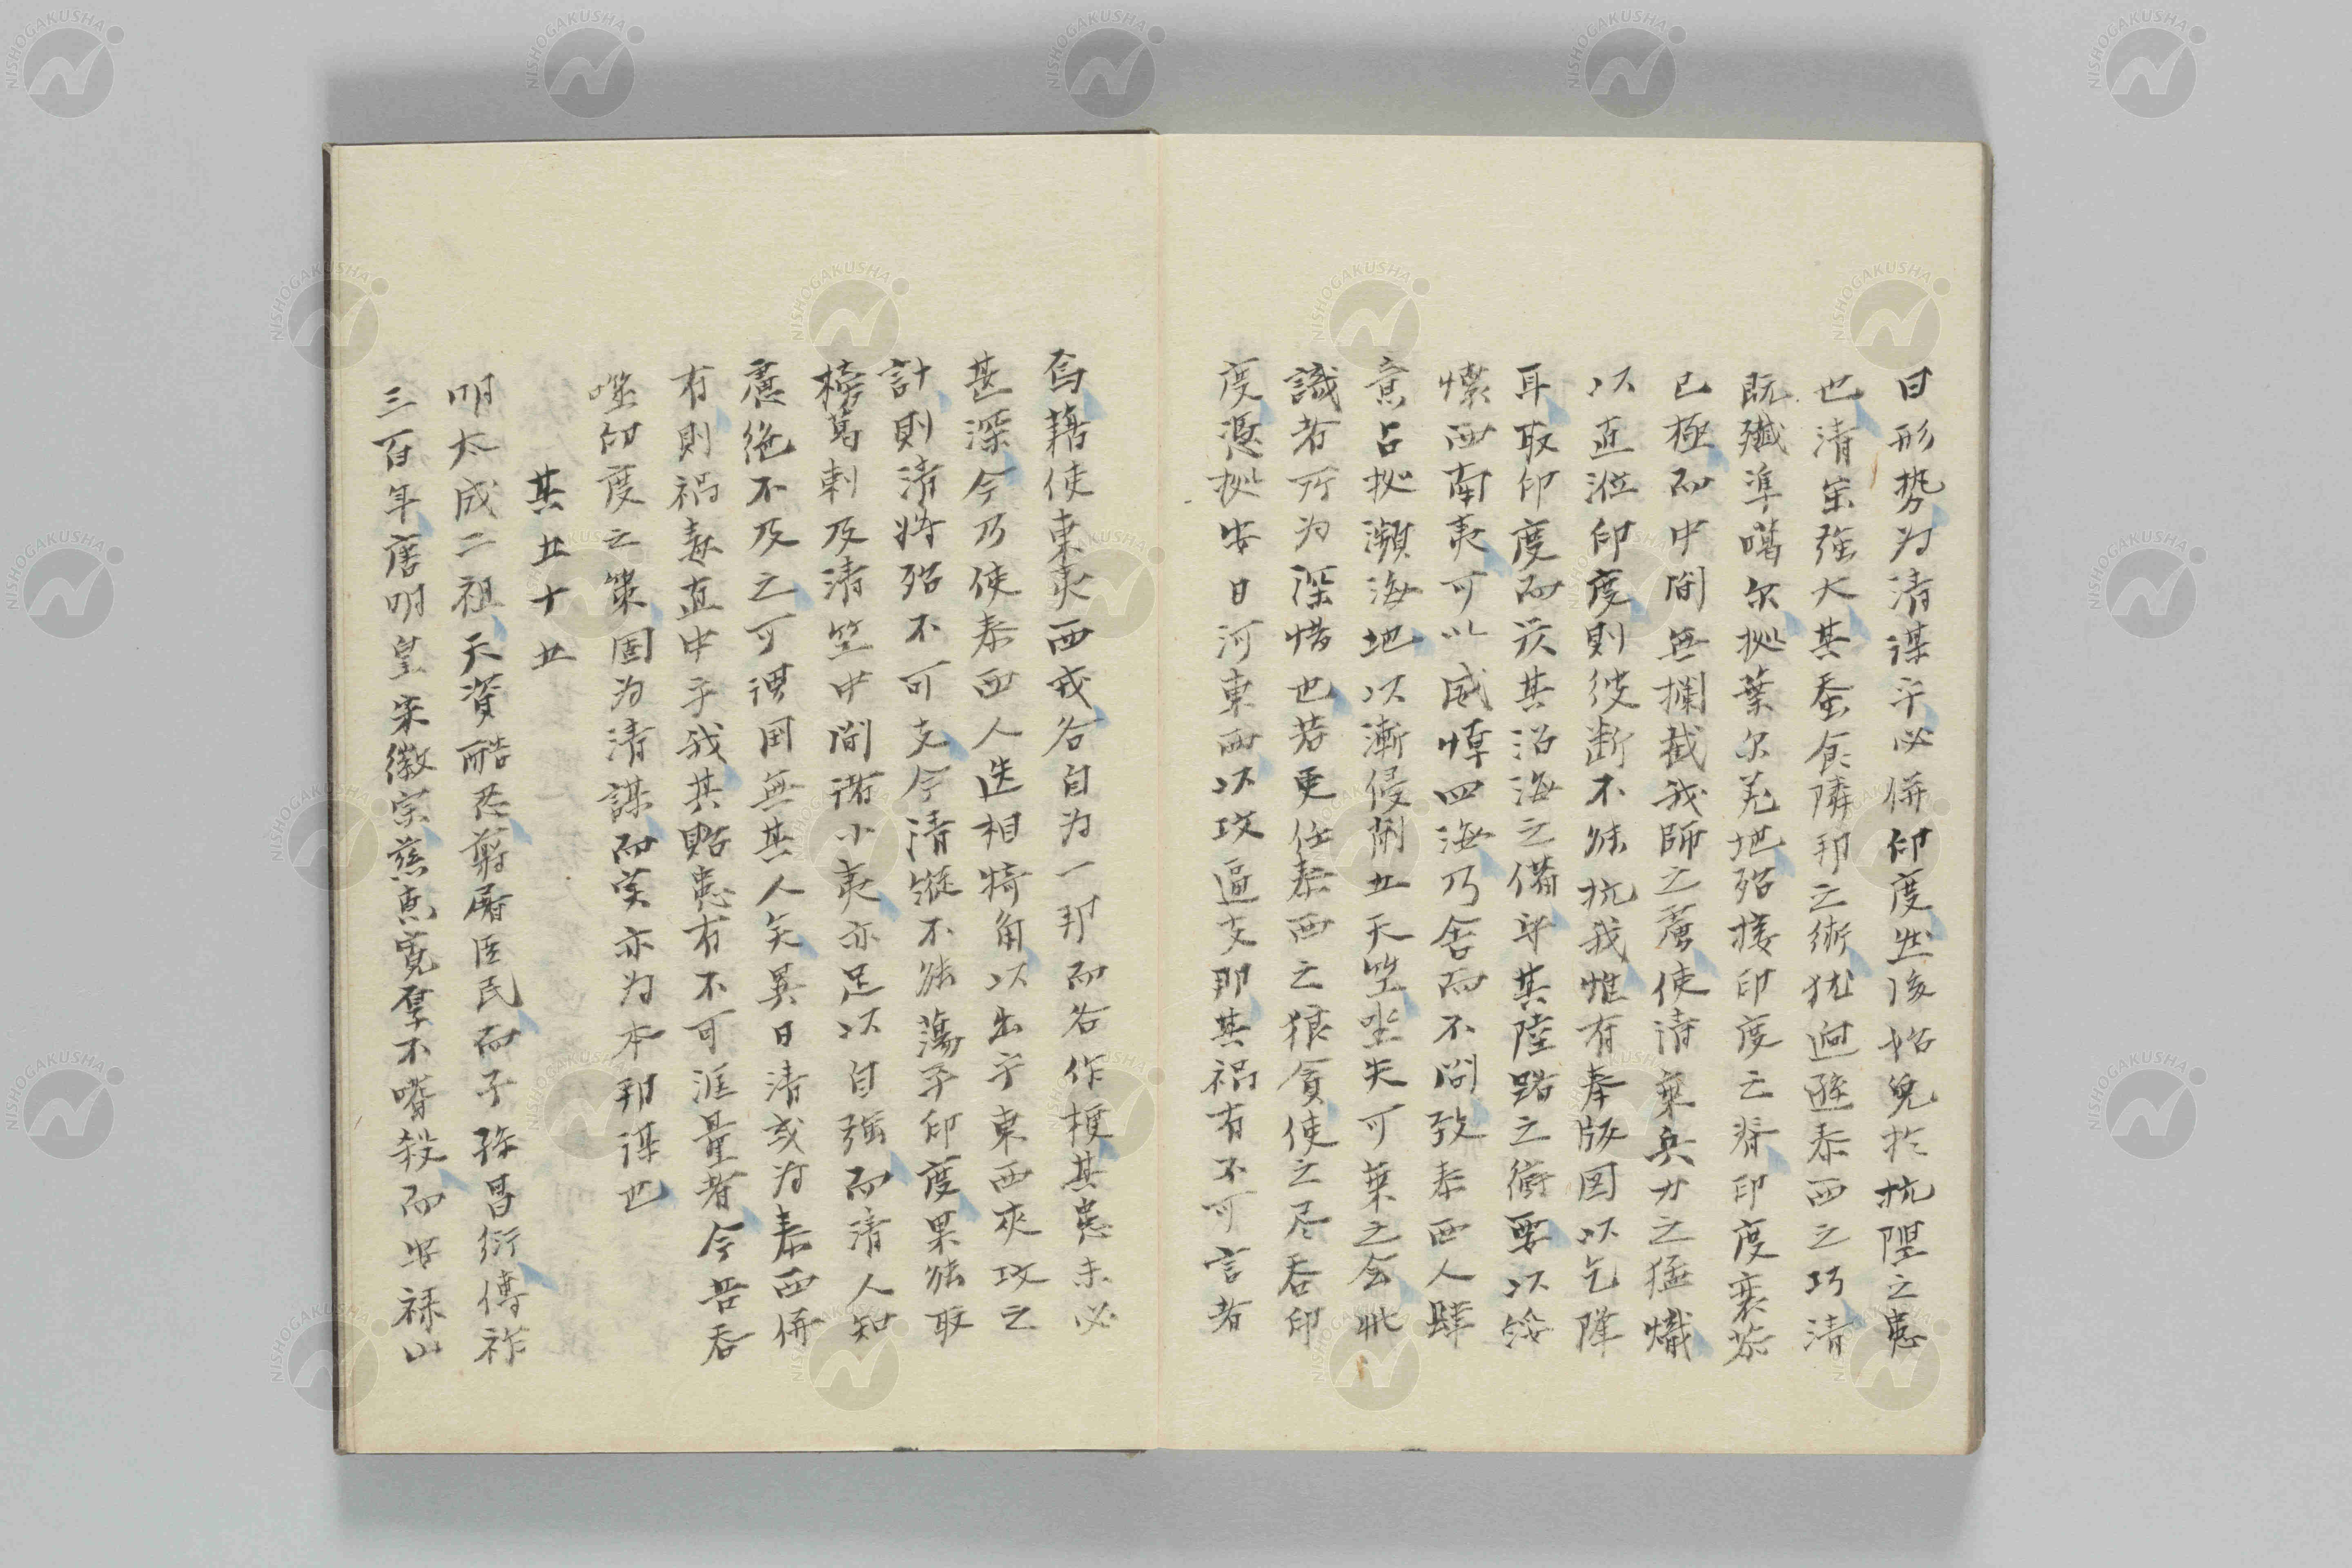 日形勢為清謀乎必併印度然後始免於抗陧之患
也清宗強大其蚕食隣邦之術犹迥遜泰西之巧清
既殱準噶尔拠葉尔羌地殆接印度之脊印度衰苶
已極而中間無攔截我師之虞使清乗兵力之猛熾
以直涖印度則彼断不能抗我惟有奉版図以乞降
耳取印度而厳其沿海之備守其陸路之衝要以
懐西南夷可以威憚四海乃舎而不問致泰西人肆
意占拠瀕海地以漸侵削五天竺坐失可乗之会此
識者所為深惜也若更任泰西之狼貪使之尽呑印
度憑拠安日河東西以攻逼支那其禍有不可言者
焉藉使東夷西戎各自為一邦而各作梗其患未必
甚深今乃使泰西人迭相犄角以出乎東西夾攻之
計則清将殆不可支今清縦不能蕩平印度果能取
榜葛剌及清竺中間諸小夷亦足以自強而清人知
慮絶不及之可謂国無其人矣異日清或為泰西併
有則禍毒直中乎我其貽患有不可涯量者今苦呑
噬印度之策固為清謀而実亦為本邦謀也
其五十五
明太成二祖天資酷忍剪屠臣民而子孫昌衍傳祚
三百年唐明皇宋徽宗慈恵寛厚不嗜殺而安禄山
NISHOGAKUSHA